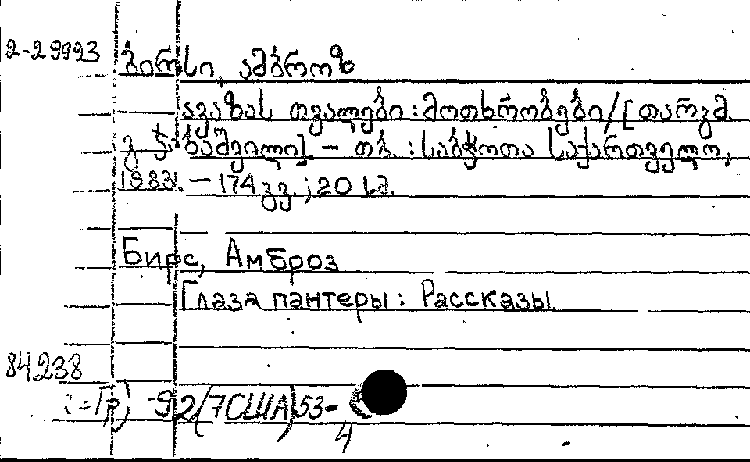 2-29923
ბირსი, ამბროზ
ავაზას თვალები : მოთხრობები / [თარგმ.
გ. ჭ ბაშვილი]. - თბ. : საბჭოთა საქართველო,
1983. - 174 გვ. ; 20 სმ.
Бирс, Амброз
Глаза пантеры : Рассказы.
84.238
92(7США)53-
4